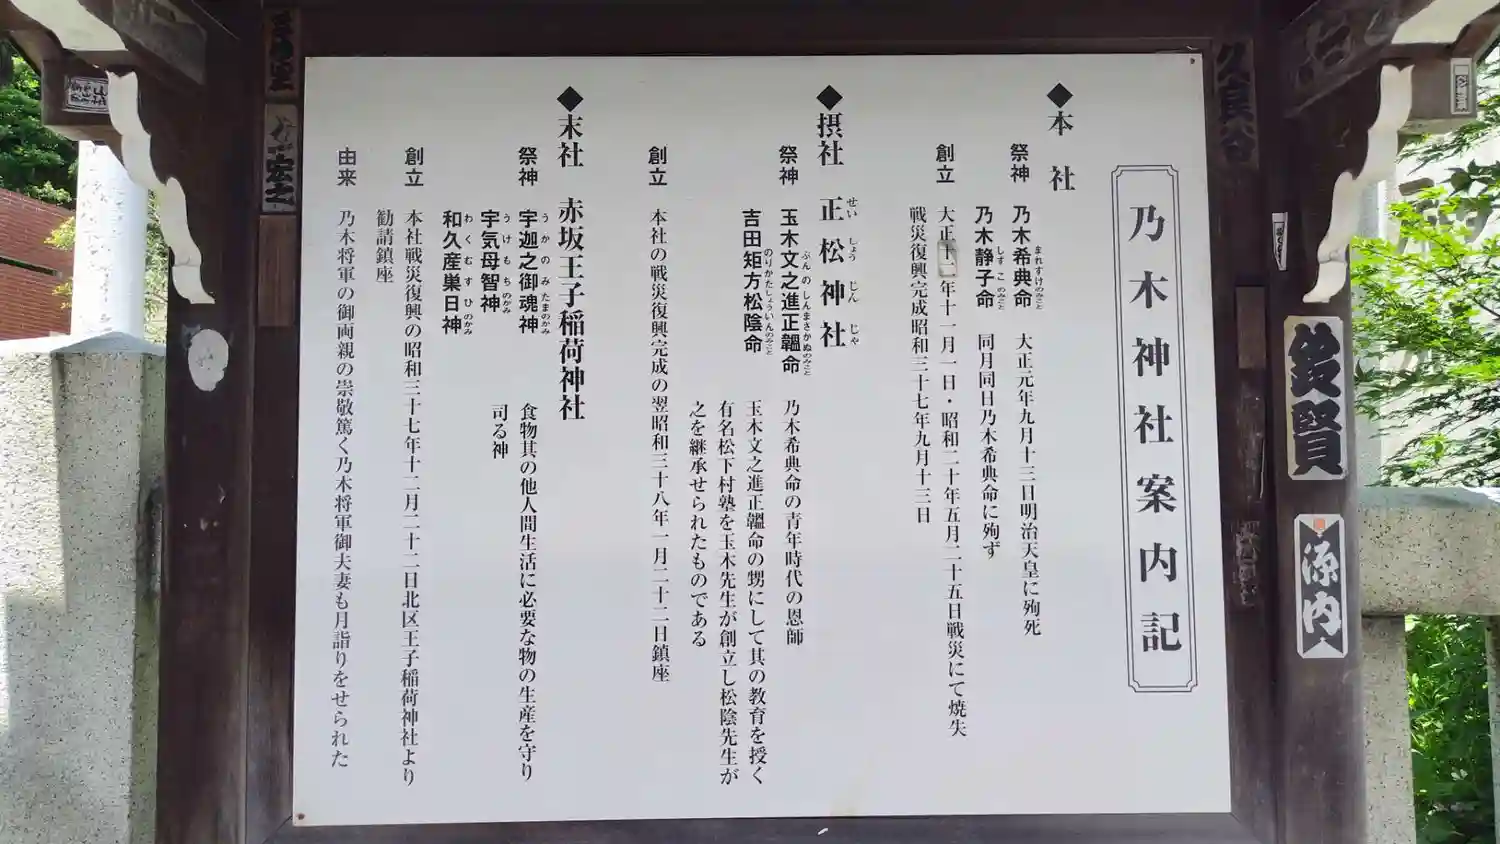 乃木神社案内記
◆本 社
祭神 乃木希典命 大正元年九月十三日明治天皇に殉死
まれすけのみこと
乃木静子命 同月同日乃木希典命に殉ず
しずこのみこと
創立 大正十二年十一月一日・昭和二十年五月二十五日戦災にて焼失
戦災復興完成昭和三十七年九月十三日
◆摂社 正松神社
せいしょうじんじゃ
祭神 玉木文之進正韞命 乃木希典命の青年時代の恩師
ぶんのしんまさかぬのみこと
玉木文之進正韞命の甥にして其の教育を授く
吉田矩方松陰命 有名松下村塾を玉木先生が創立し松陰先生が
のりかたしょういんのみこと
之を継承せられたものである
創立 本社の戦災復興完成の翌昭和三十八年一月二十二日鎮座
◆末社 赤坂王子稲荷神社
祭神 宇迦之御魂神 食物其の他人間生活に必要な物の生産を守り
うかのみたまのかみ
宇気母智神 司る神
うけもちのかみ
和久産巣日神
わくむすひのかみ
創立 本社戦災復興の昭和三十七年十二月二十二日北区王子稲荷神社より
勧請鎮座
由来 乃木将軍の御両親の崇敬篤く乃木将軍御夫妻も月詣りをせられた
久良谷
鈴賢
源内
宏之